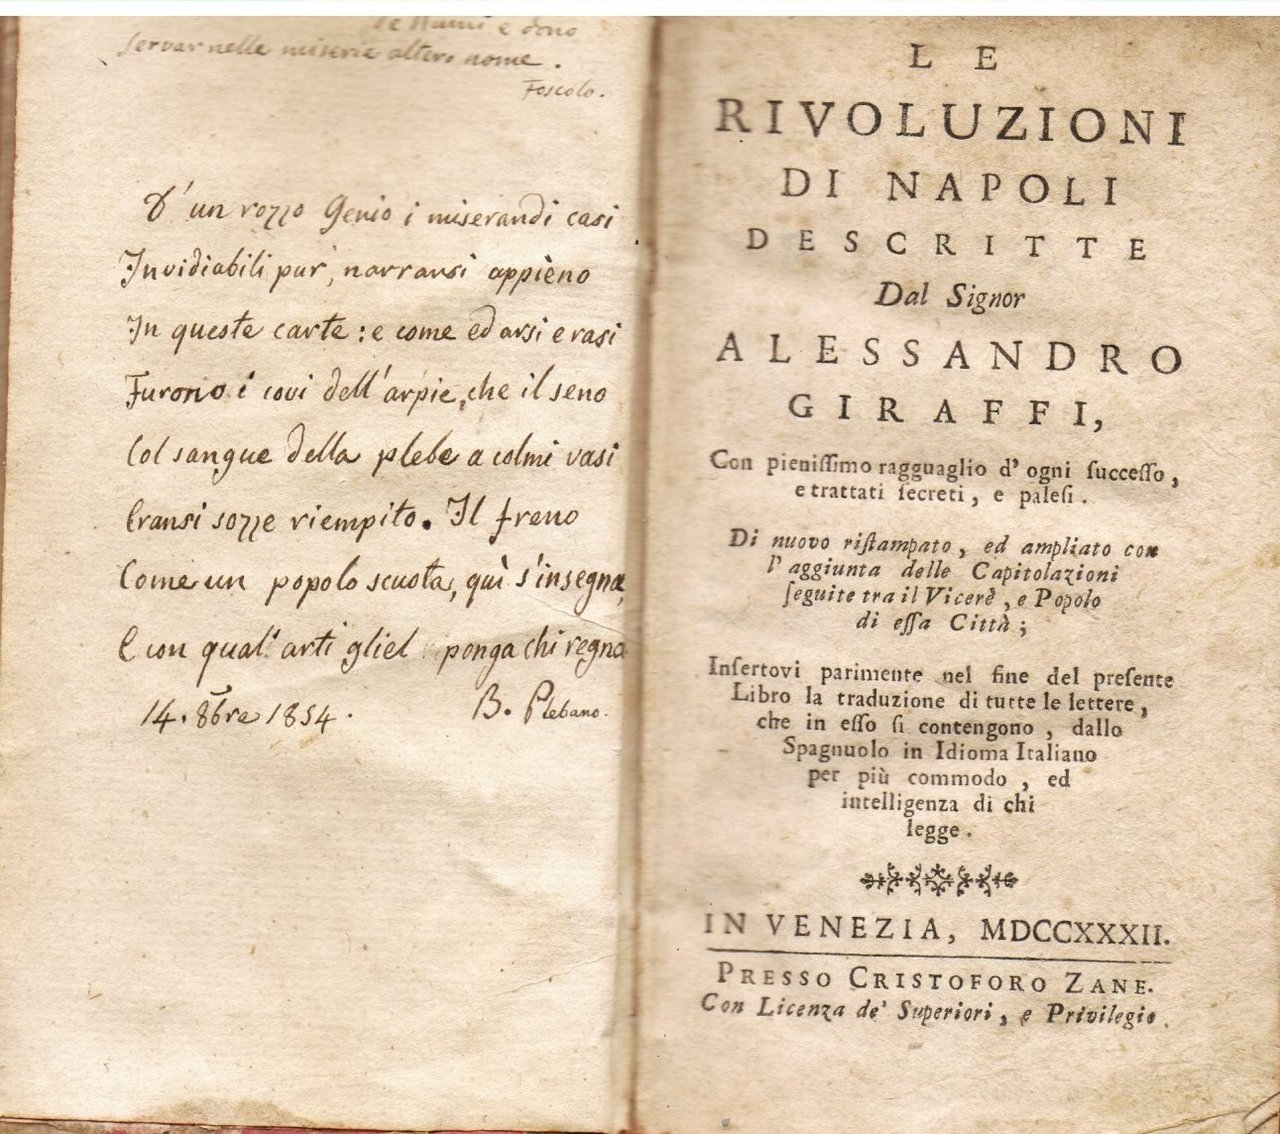 de Numi è dono
servar nelle miserie altero nome.
Foscolo.
D'un rozzo Genio i miserandi casi
Invidiabili pur, narransi appièno
In queste carte: e come ed arsi e rasi
Furono i covi dell'arpie, che il seno
Col sangue della plebe a colmi vasi
Eransi sozze riempito. Il freno
Come un popolo scuota, quì s'insegna,
E con qual' arti gliel ponga chi regna
14. 8bre 1854.
B. Plebano.
LE
RIVOLUZIONI
DI NAPOLI
DESCRITTE
Dal Signor
ALESSANDRO
GIRAFFI,
Con pienissimo ragguaglio d' ogni successo,
e trattati secreti, e palesi.
Di nuovo ristampato, ed ampliato con
l' aggiunta delle Capitolazioni
seguite tra il Vicerè, e Popolo
di essa Città;
Insertovi parimente nel fine del presente
Libro la traduzione di tutte le lettere,
che in esso si contengono, dallo
Spagnuolo in Idioma Italiano
per più commodo, ed
intelligenza di chi
legge.
IN VENEZIA, MDCCXXXII.
PRESSO CRISTOFORO ZANE.
Con Licenza de' Superiori, e Privilegio.